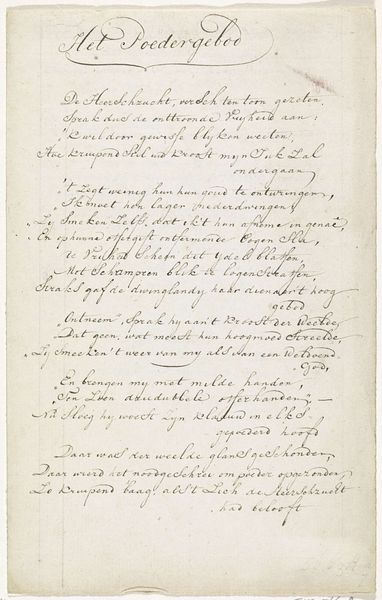 Het Poedergebod
De Heerschzucht, versch ten toon gezeten,
Sprak dus de onttroonde Vryheid aan:
"k wil door gewisse blyken weeten,
Hoe kruipend Stil uw kroost myn Juk zal
ondergaan
't Zegt weinig hun hun goud te ontwringen,
'k moet hon lager nederdringen,
Zy Smeken Zelfs, dat ik 't hon afneme in genae,
En op hunne offergift ontfermende oogen sla,
te
Met Schampren blik te logenstraffen,
Straks gaf de dwinglandy haar dienaar 't hoog
gebod
"Ontneem", Sprak hy aan 't kroost der weelde,
"Dat geen, wat meest hun hoogmoed Streelde,
Zy smeeken 't weer van my als van een
God,
"En brengen my met milde handen,
driedubbele offerhanden," —
Nu Sloeg hy woest Zyn klauw in elks
gepoederd hoofd
Daar was der weelde glans geschonden,
Daar wierd het noodgeschrei om poeder opgezonden,
Zo kruipend laag, als 't Zich de Heerschzucht
had belooft